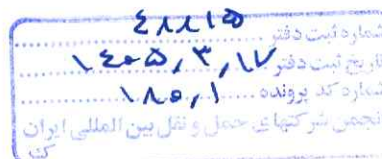 شماره ثبت دفتر ۴۸۸۱۵
تاریخ ثبت دفتر ۱۴۰۵,۳,۱۷
شماره کد پرونده ۱۸۰,۱
انجمن شرکتهای حمل و نقل بین المللی ایران